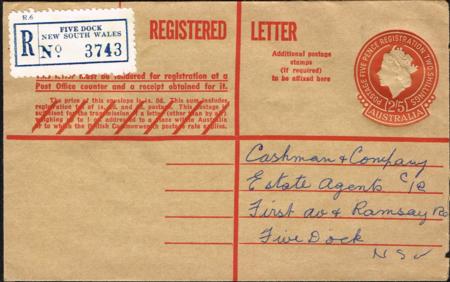 R.6
FIVE DOCK
NEW SOUTH WALES
R No 3743
REGISTERED LETTER
Additional postage
stamps
(if required)
to be affixed here
POSTAGE FIVE PENCE REGISTRATION TWO SHILLINGS
2/5
AUSTRALIA
must be tendered for registration at a
Post Office counter and a receipt obtained for it.
The price of this envelope is 2s. 8d. This sum includes
registration fee of 2s. and postage 5d. This postage is
sufficient for the transmission of a letter (other than by air)
weighing up to 1 oz addressed to a place within Australia
or to which the British Commonwealth postage rate applies.
Cashman & Company
Estate Agents
First av & Ramsay Rd
Five Dock
NSW